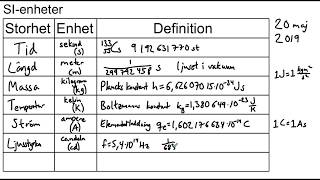 SI-enheter
Storhet Enhet Definition
Tid sekund (s) 133 Cs 9 192 631 770 st
Längd meter (m) 1/299 792 458 s ljuset i vakuum
Massa kilogram (kg) Plancks konstant h=6,62607015·10⁻³⁴ Js
Temperatur kelvin (K) Boltzmanns konstant k_B=1,380649·10⁻²³ J/K
Ström ampere (A) Elementarladdning q_e=1,602176634·10⁻¹⁹ C
Ljusstyrka candela (cd) f=5,4·10¹⁴ Hz 1/683
20 maj
2019
1J=1 kgm²/s²
1C=1As